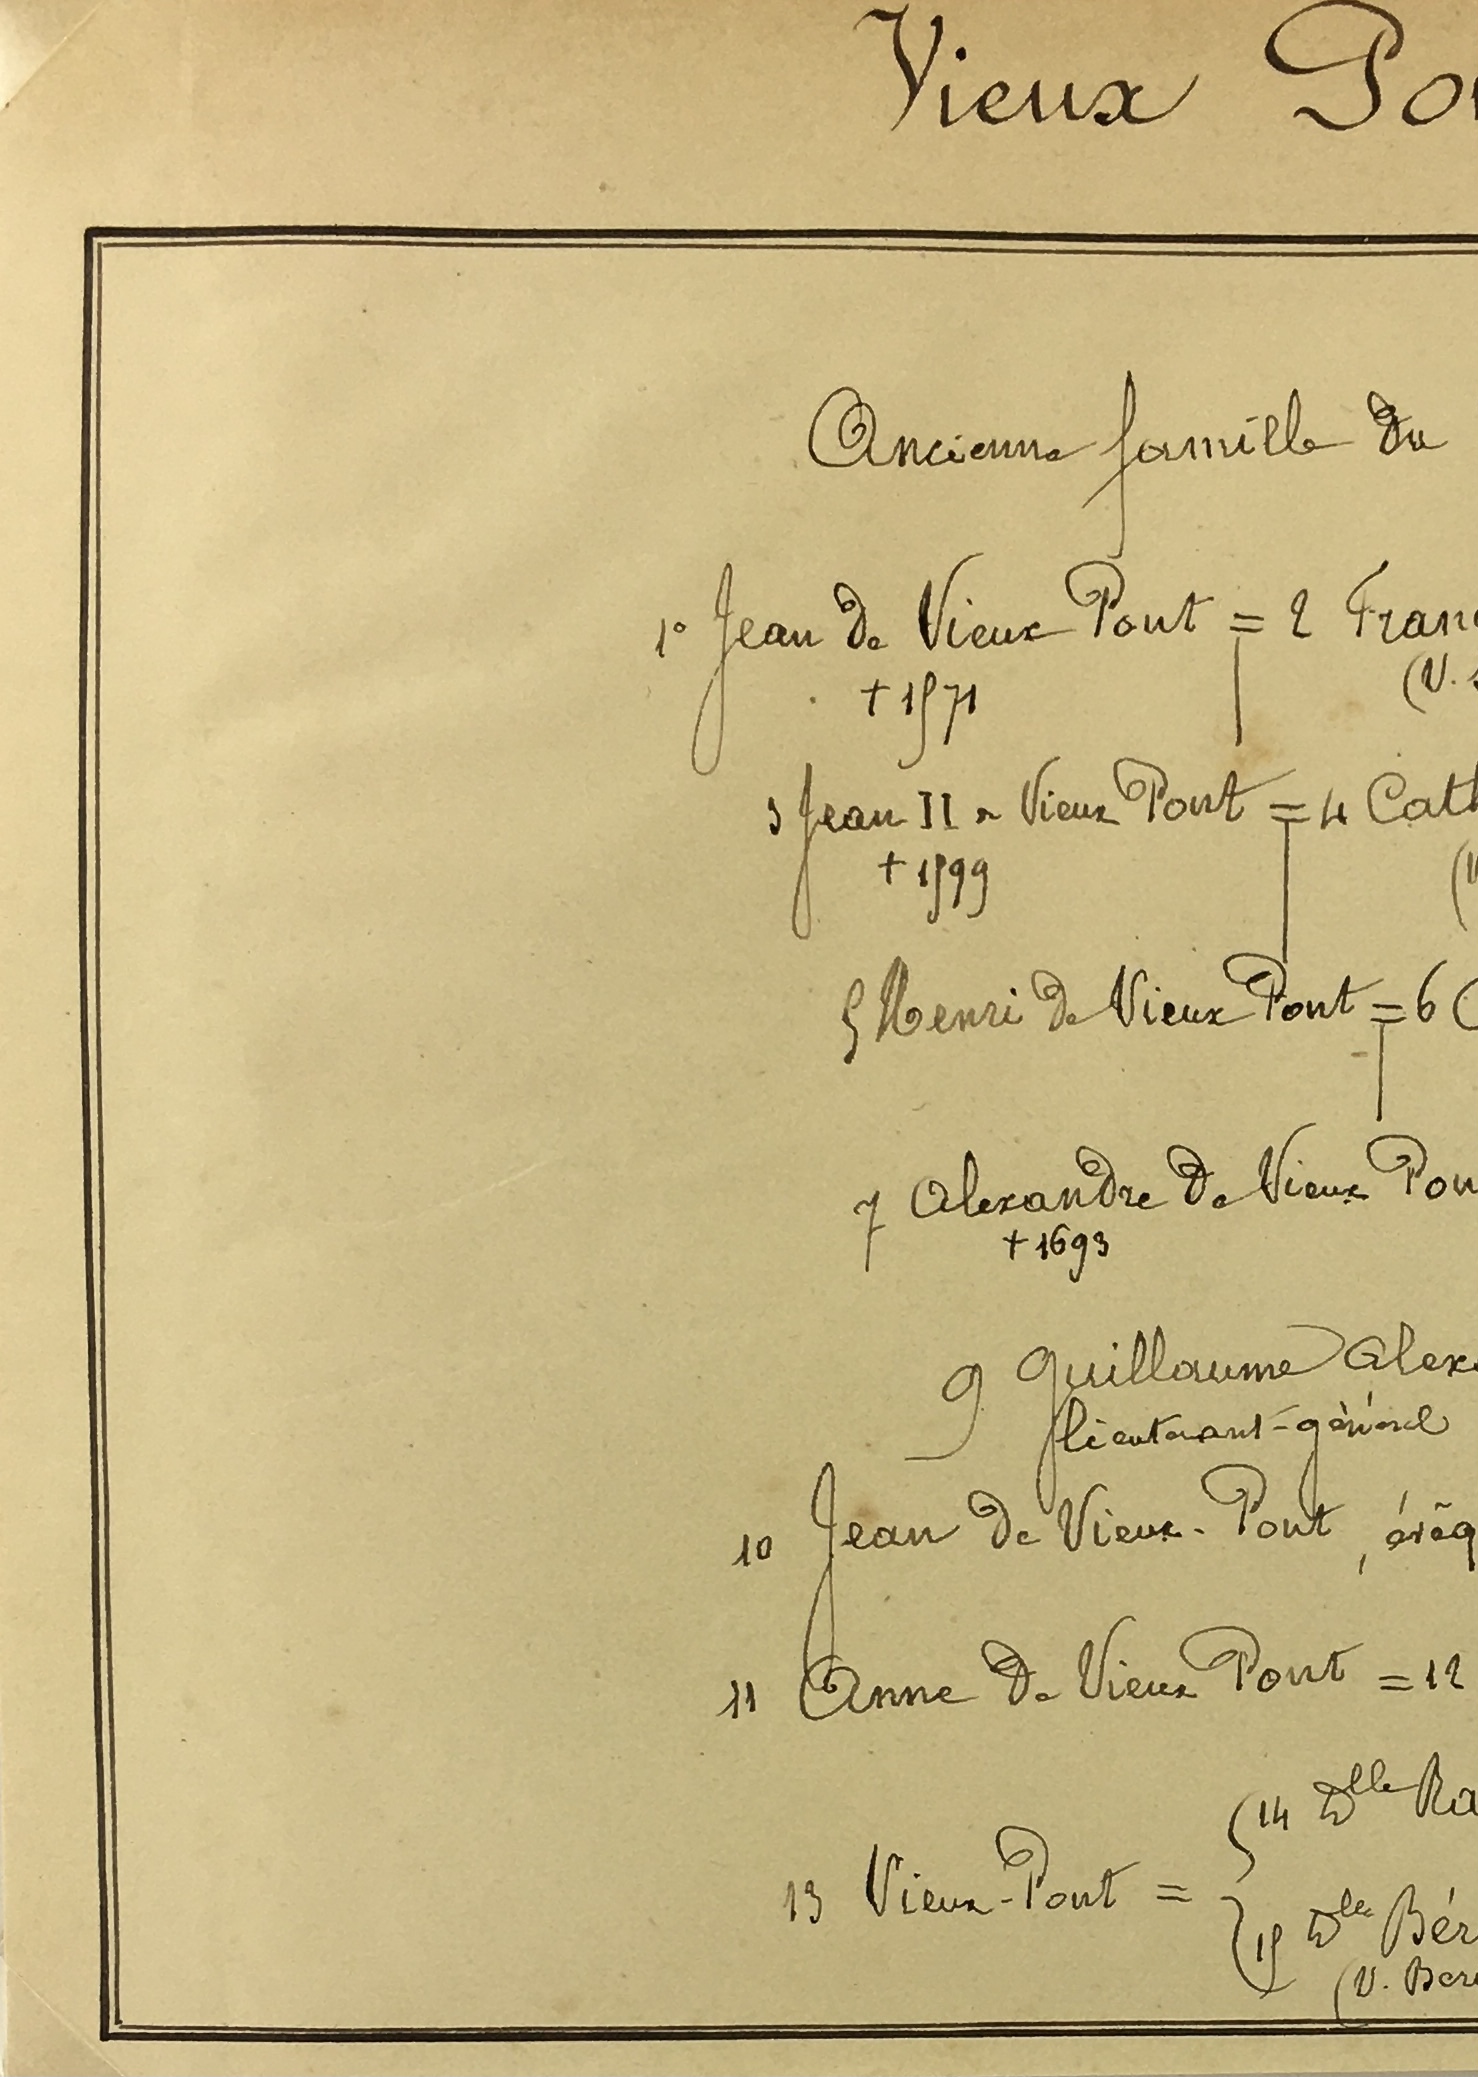 Vieux Pon
Ancienne famille du
1° Jean de Vieux Pont = 2 Franc
+ 1571 (V. s
3 Jean II de Vieux Pont = 4 Cath
+ 1599 (V
5 Henri de Vieux Pont = 6 C
7 Alexandre de Vieux Pon
+ 1693
9 Guillaume Alexa
lieutenant-général
10 Jean de Vieux-Pont, évêq
11 Anne de Vieux Pont = 12
14 Dlle Ra
13 Vieux-Pont =
15 Dlle Bér
(V. Bere